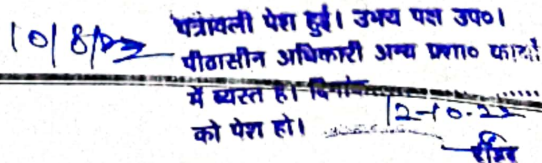 10/8/22 पत्रावली पेश हुई। उभय पक्ष उप०।
पीठासीन अधिकारी अन्य प्रशा० कार्यो
में व्यस्त है। दिनांक 12-10-22
को पेश हो।